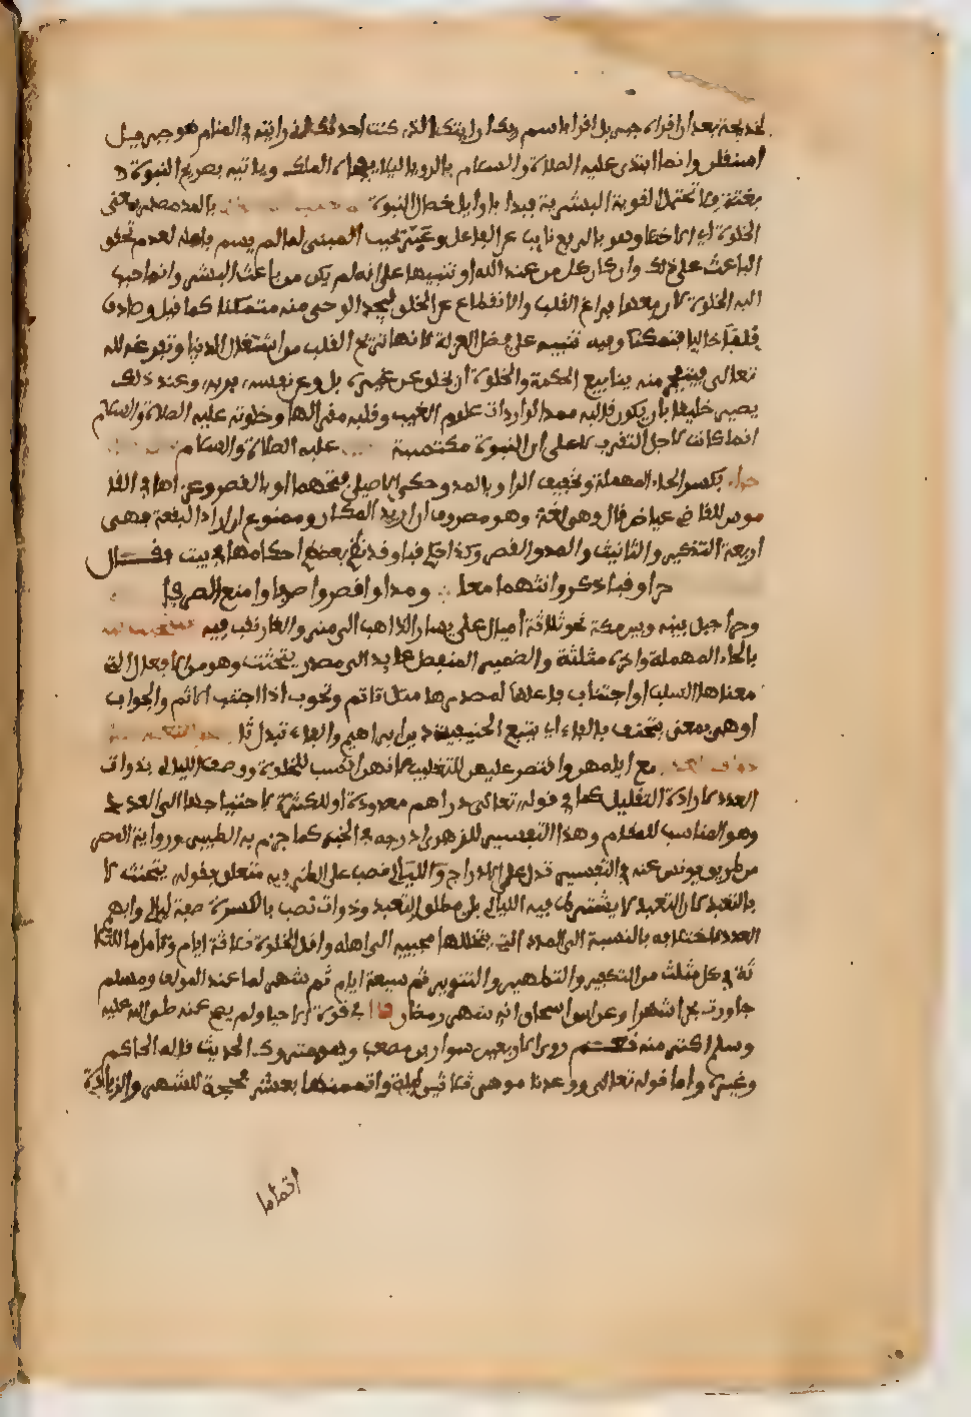 لخديجة بعد ان اقراه جبريل اقرا باسم ربك ارايتك الذي كنت احدثك اني رايته في المنام هو جبريل
استقلن وانما ابتدي عليه الصلاة والسلام بالرويا ليلا يفجاه الملك وياتيه بصريح النبوة
بغتة فلا تحتملها القوة البشرية فبدا باوايل خصال النبوة بالمد مصدر بمعنى
الخلوة اي الاختلاء وهو بالرفع نايب عن الفاعل وعبر بحبب المبني لما لم يسم فاعله لعدم تحقق
الباعث على ذلك وان كان كل من عند الله او تنبيها على انه لم يكن من باعث البشر وانما حبب
اليه الخلوة لان معها فراغ القلب والانقطاع عن الخلق ليجد الوحي منه متمكنا كما قيل وصادف
قلبا خاليا فتمكنا وفيه تنبيه على فضل العزلة لانها تريح القلب من اشتغال الدنيا وتفرغه لله
تعالى فينفجر منه ينابيع الحكمة والخلوة ان يخلو عن غيره بل وعن نفسه بربه وعند ذلك
يصير خليقا بان يكون قالبه ممرا لواردات علوم الغيب وقلبه مقرا لها وخلوته عليه الصلاة والسلام
انما كانت لاجل التقرب لا على ان النبوة مكتسبة عليه الصلاة والسلام
حراء بكسر الحاء المهملة وتخفيف الراء وبالمد وحكى الاصيلي فتحها او بالقصر وعزاها في القا
موس للقاضي عياض قال وهو لغة وهو مصروف ان اريد المكان وممنوع ان اراد البقعة فهي
اربعة التذكير والتانيث والمد والقصر وكذا حكم قبا وقد نظم بعضهم احكامها في بيت فقال
حرا وقبا ذكر وانثهما معا ومد او اقصر واصرفا وامنع الصرفا
وحرا جبل بينه وبين مكة نحو ثلاثة اميال على يسار الذاهب الى منى والغار نقب فيه
بالحاء المهملة واخره مثلثة والضمير المنفصل عايد الى مصدر يتحنث وهو من الافعال التي
معناها السلب او اجتناب فاعلها لمصدرها مثل تاثم وتحوب اذا اجتنب الاثم والحواب
او هي بمعنى يتحنف بالفاء اي يتبع الحنيفية دين ابراهيم والفاء تبدل ثا
مع ايامهن واقتصر عليهن للتغليب لانهن انسب للخلوة ووصف الليالي بذوات
العدد لارادة التقليل كما في قوله تعالى دراهم معدودة او للكثرة لاحتياجها الى العدد
وهو المناسب للمقام وهذا التفسير للزهري ادرجه في الخبر كما جزم به الطيبي ورواية المص
من طريق يونس عنه في التفسير تدل على الادراج والليالي نصب على الظرفية متعلق بقوله يتحنث لا
بالتعبد لان التعبد لا يشترط فيه الليالي بل مطلق التعبد وذوات نصب بالكسرة صفة ليالي وابهم
العدد لاختلافه بالنسبة الى المدد التي يتخللها مجيئه الى اهله واقل الخلوة ثلاثة ايام وتامل ما للثلا
ثة في كل مثلث من التكفير والتطهير والتنوير ثم سبعة ايام ثم شهر لما عند المولف ومسلم
جاورت بحرا شهرا وعن ابن اسحاق انه شهر رمضان في قوة الاحيا ولم يصح عنه صلى الله عليه
وسلم اكثر منه نعم روى الاربعين سوار بن مصعب وهو متروك الحديث قاله الحاكم
وغيره واما قوله تعالى ووعدنا موسى ثلاثين ليلة واتممناها بعشر فحجة للشهر والزيادة
اتماما